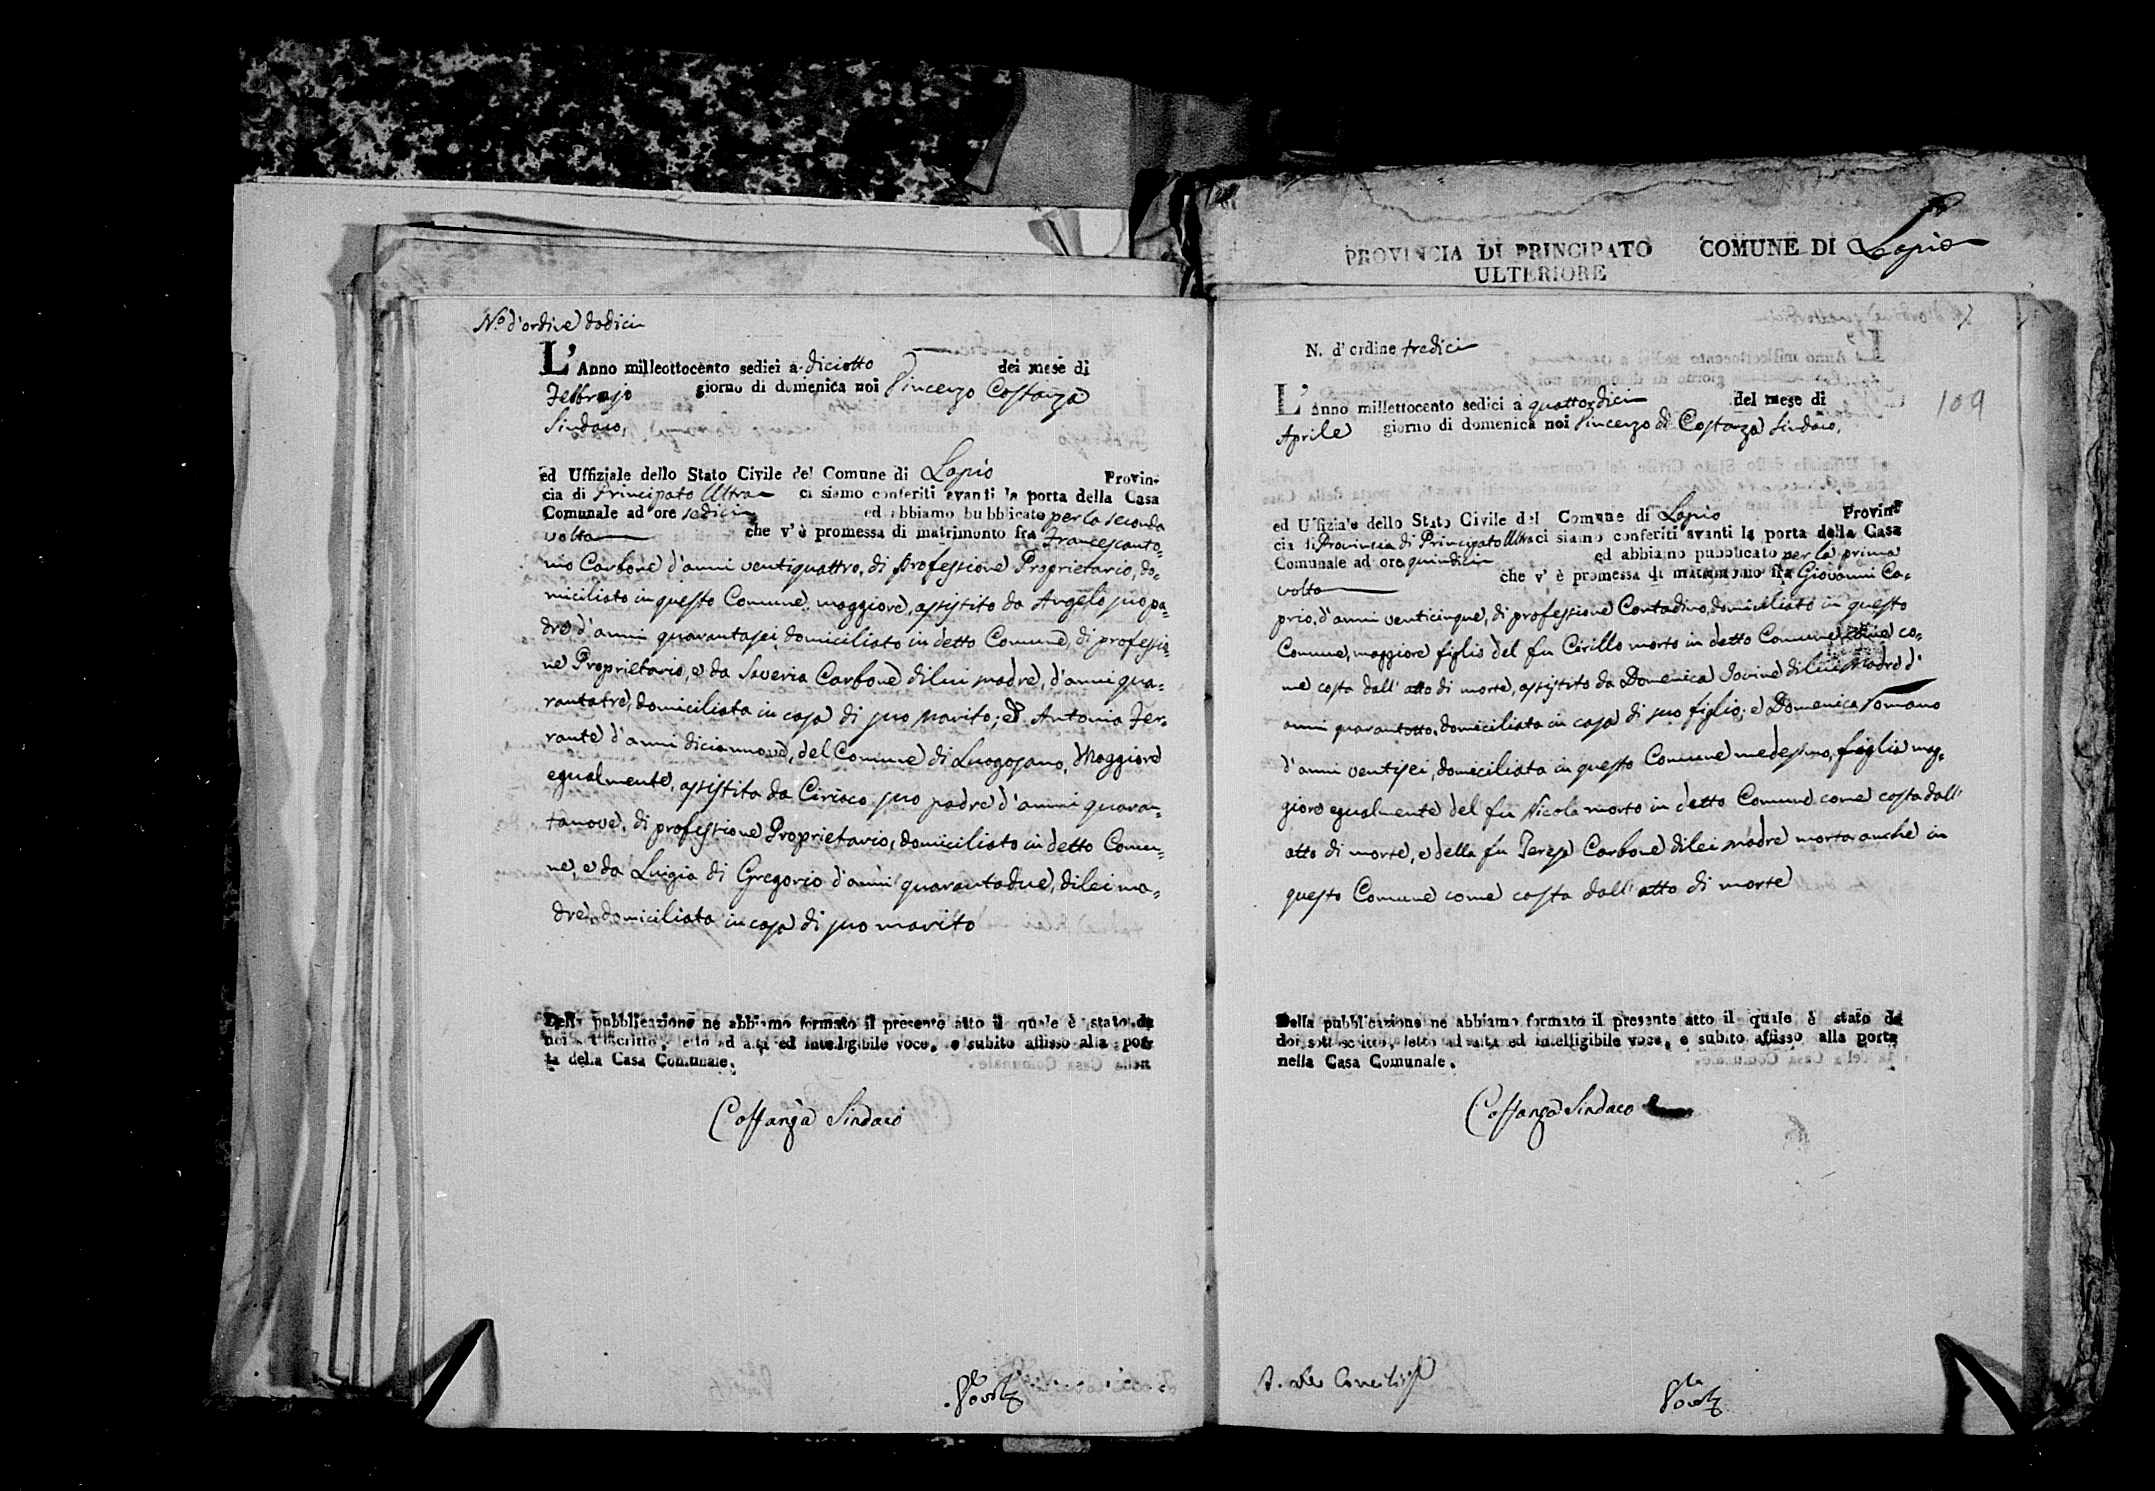 N.º d'ordine dodici
L' Anno milleottocento sedici a diciotto del mese di
Febbrajo giorno di domenica noi Vincenzo Costanza
Sindaco,
ed Uffiziale dello Stato Civile del Comune di Lapio Provin-
cia di Principato Ultra ci siamo conferiti avanti la porta della Casa
Comunale ad ore sedici ed abbiamo bubblicato per la seconda
volta che v' è promessa di matrimonto fra Francescanto-
nio Carbone d'anni ventiquattro, di professione Proprietario, do-
miciliato in questo Comune, maggiore, assistito da Angelo suo pa-
dre d'anni quarantasei, domiciliato in detto Comune, di professio-
ne Proprietario, e da Saveria Carbone di lui madre, d'anni qua-
rantatre, domiciliata in casa di suo marito; ed Antonia Fer-
rante d'anni diciannove, del Comune di Luogosano, Maggiore
egualmente, assistita da Ciriaco suo padre d'anni quaran-
tanove, di professione Proprietario, domiciliato in detto Comu-
ne, e da Luigia di Gregorio d'anni quarantadue, di lei ma-
dre, domiciliata in casa di suo marito
Della pubblicazione ne abbiamo formato il presente atto il quale è stato da
noi sottoscritto, letto ad alta ed intelligibile voce, e subito affisso alla por-
ta della Casa Comunale.
Costanza Sindaco
PROVINCIA DI PRINCIPATO COMUNE DI Lapio
ULTERIORE
N. d' ordine tredici
109
L' Anno millettocento sedici a quattordici del mese di
Aprile giorno di domenica noi Vincenzo di Costanza Sindaco,
ed Uffiziale dello Stato Civile del Comune di Lapio Provin-
cia di Provincia di Principato Ultra ci siamo conferiti avanti la porta della Casa
Comunale ad ore quindici ed abbiamo pubblicato per la prima
volta che v' è promessa di matrimonio fra Giovanni Ca-
prio, d'anni venticinque, di professione Contadino, domiciliato in questo
Comune, maggiore figlio del fu Cirillo morto in detto Comune co-
me costa dall' atto di morte, assistito da Domenica Iovine di lui madre d'
anni quarantotto, domiciliata in casa di suo figlio; e Domenica Romano
d'anni ventisei, domiciliata in questo Comune medesimo, figlia mag-
giore egualmente del fu Nicola morto in detto Comune come costa dall'
atto di morte, e della fu Teresa Carbone di lei madre morta anche in
questo Comune come costa dall' atto di morte
Della pubblicazione ne abbiamo formato il presente atto il quale è stato da
doi sottoscritto, letto ad alta ed intelligibile voce, e subito affisso alla porta
nella Casa Comunale.
Costanza Sindaco